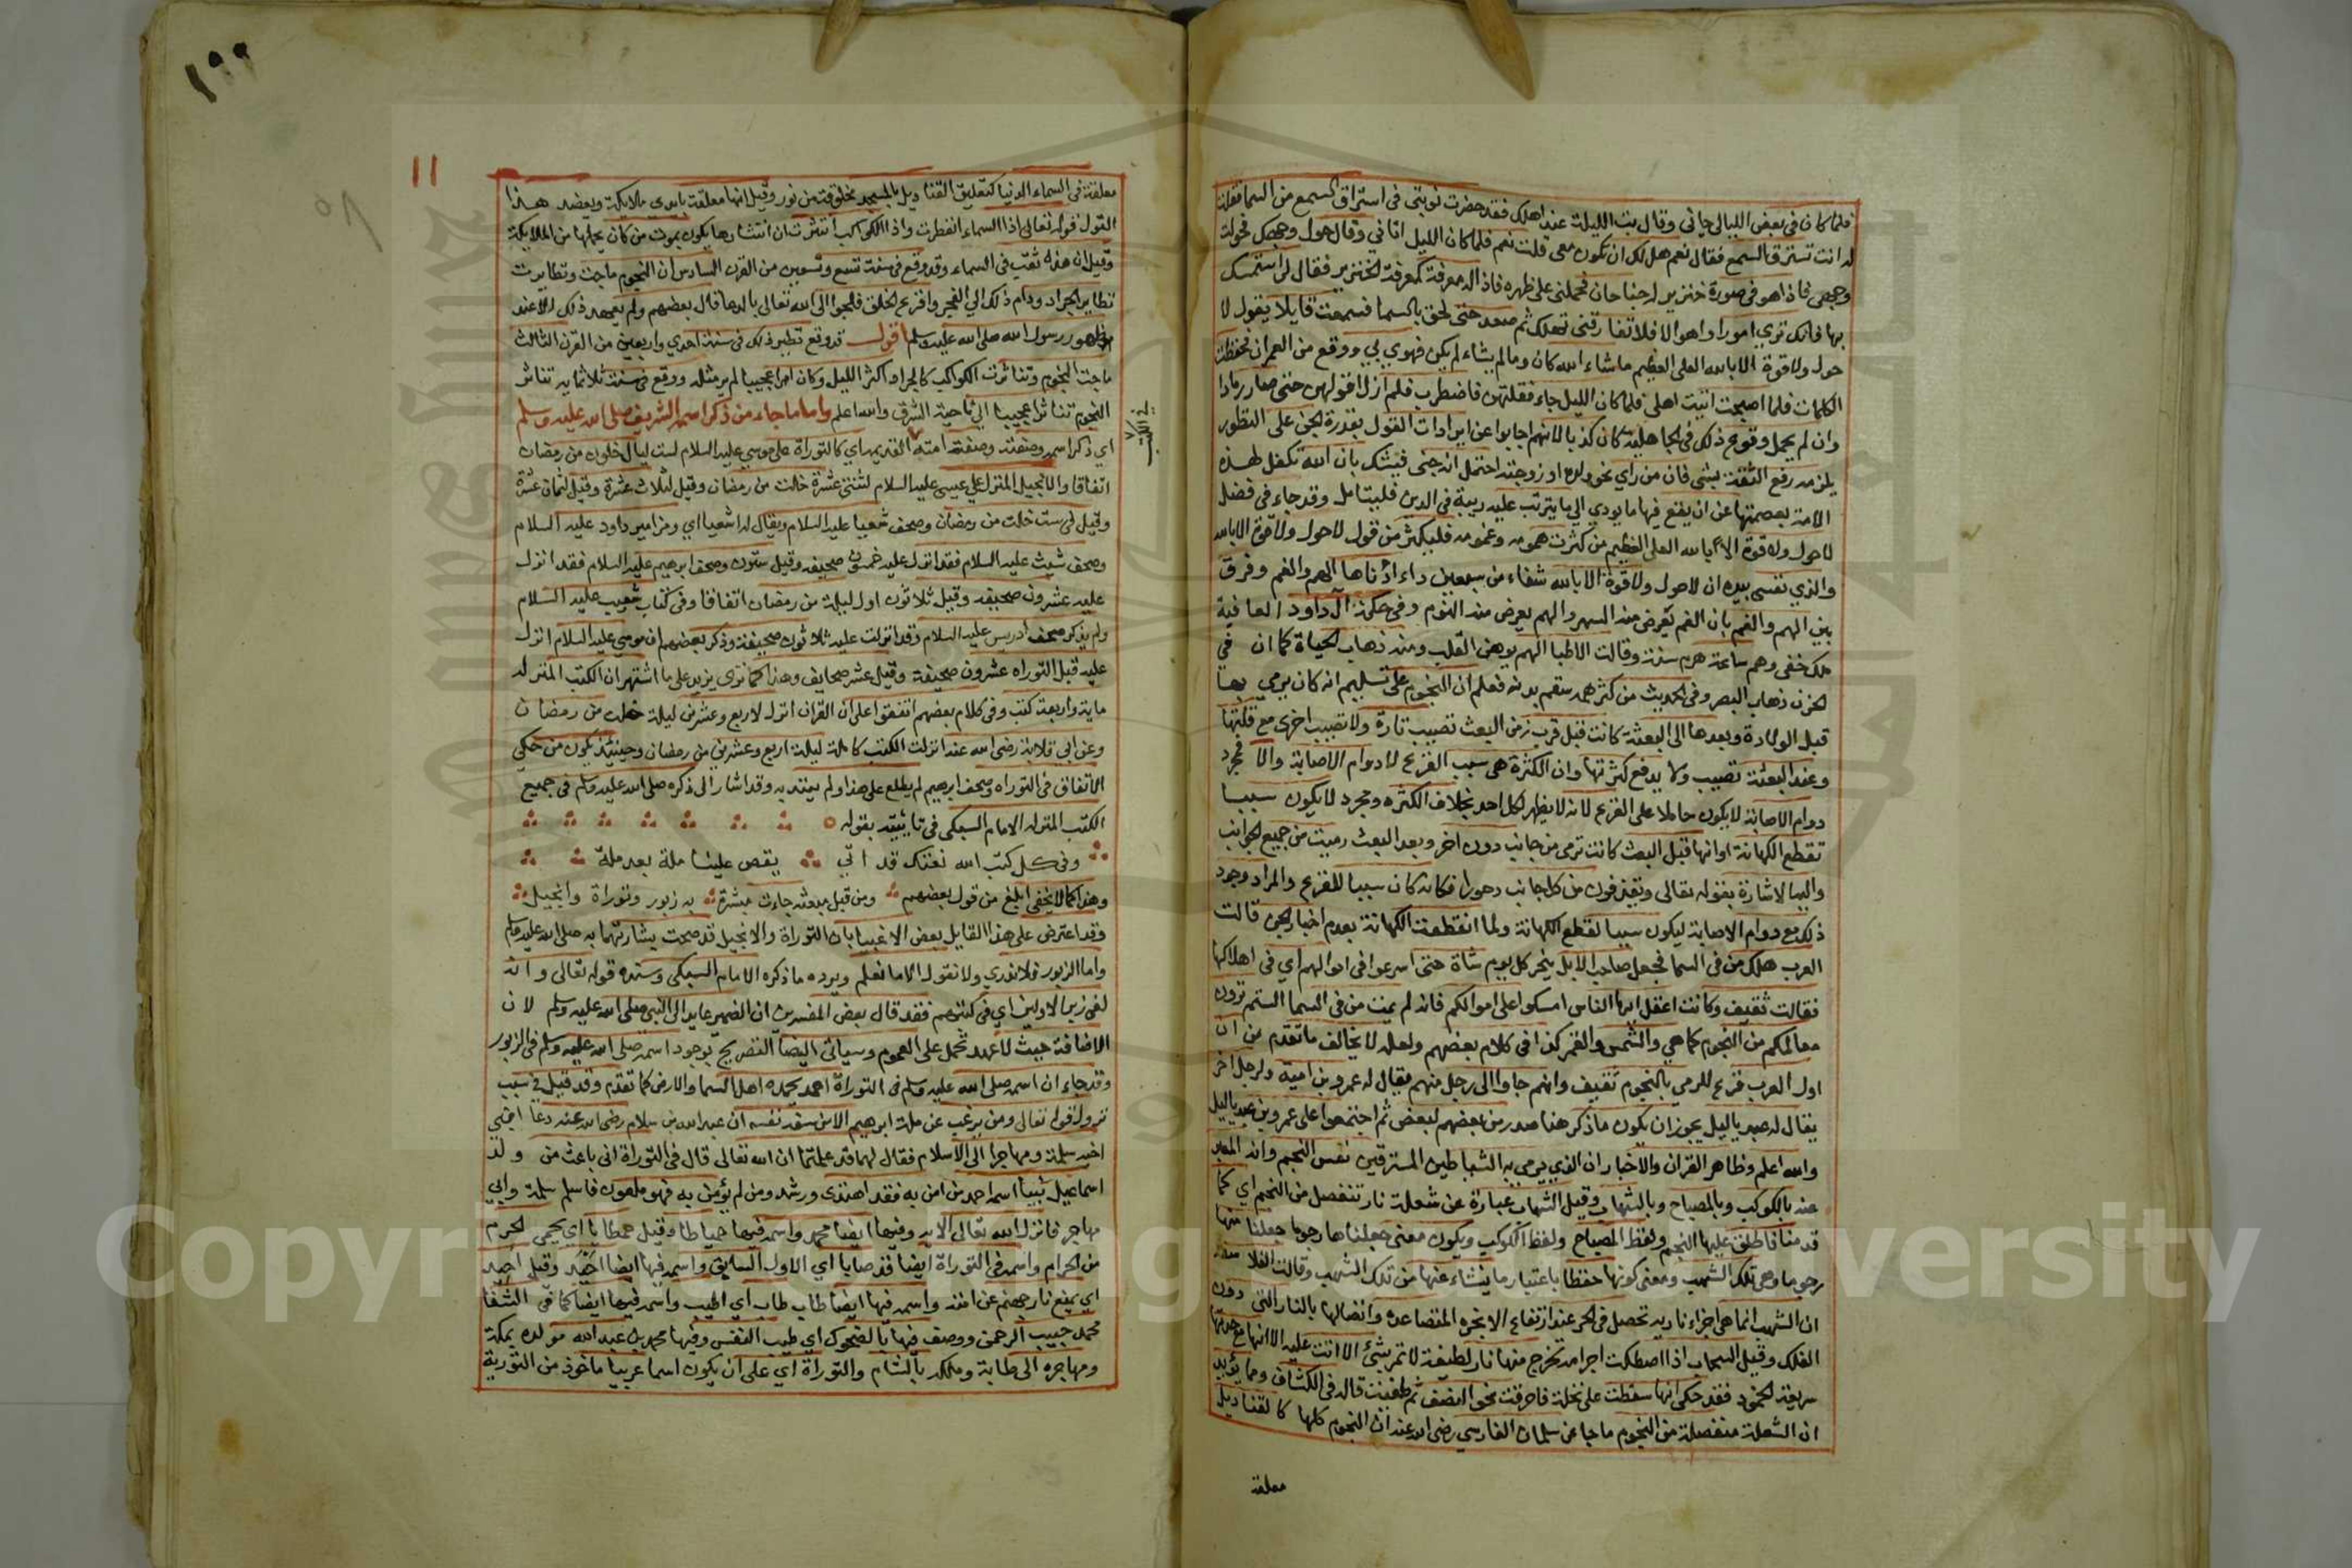 فلما كان في بعض الليالي جاني وقال بت الليلة عند اهلك فقد حضرت نوبتي في استراق السمع من السما فقلت
له انت تسترق السمع فقال نعم هل لك ان تكون معي قلت نعم فلما كان الليل اتاني وقال حول وجهك فحولت
وجهي فاذا هو في صورة خنزير له جناحان فحملني على ظهره فاذا له معرفة كمعرفة الخنزير فقال لي استمسك
بها فانك تري امورا واهوالا فلا تفارقني تهلك ثم صعد حتى لحق بالسما فسمعت قايلا يقول لا
حول ولا قوة الا بالله العلي العظيم ما شاء الله كان وما لم يشاء لم يكن فهوي بي ووقع من العمران فحفظت
الكلمات فلما اصبحت اتيت اهلي فلما كان الليل جاء فقلتهن فاضطرب فلم ازل اقولهن حتى صار رمادا
وان لم يحمل وقوع ذلك في الجاهلية كان كذبا لانهم اجابوا عن ايرادات القول بقدرة الجن على التطور
يلزمه رفع الثقة بشي فان من راي نحو ولده او زوجته احتمل انه جني فيشك بان الله تكفل لهذه
الامة بعصمتها عن ان يقع فيها ما يودي الي ما يترتب عليه ريبة في الدين فليتامل وقد جاء في فضل
لا حول ولا قوة الا بالله العلي العظيم من كثرت همومه وغمومه فليكثر من قول لا حول ولا قوة الا بالله
والذي نفسي بيده ان لا حول ولا قوة الا بالله شفاء من سبعين داء ادناها الهم والغم وفرق
بين الهم والغم بان الغم يعرض منه السهر والهم يعرض منه النوم وفي حكمة آل داود العافية
ملك خفي وهم ساعة هرم سنة وقالت الاطبا الهم يوهن القلب ومنه ذهاب الحياة كما ان في
الحزن ذهاب البصر وفي الحديث من كثر همه سقم بدنه فعلم ان النجوم على تسليم انه كان يرمي بها
قبل الولادة وبعدها الى البعثة كانت قبل قرب زمن البعث تصيب تارة ولا تصيب اخرى مع قلتها
وعند البعثة تصيب ولا يدفع كثرتها وان الكثرة هي سبب الفزع لا دوام الاصابة والا فمجرد
دوام الاصابة لا يكون حاملا على الفزع لانه لا يظهر لكل احد بخلاف الكثرة ومجرد لا يكون سببا
تقطع الكهانة او انها قبل البعث كانت ترمى من جانب دون اخر وبعد البعث رميت من جميع الجوانب
واليها الاشارة بقوله تعالى ويقذفون من كل جانب دحورا فكانه كان سببا للفزع والمراد وجود
ذلك مع دوام الاصابة ليكون سببا لقطع الكهانة ولما انقطعت الكهانة بعدم اخبار الجن قالت
العرب هلك من في السما فجعل صاحب الابل ينحر كل يوم شاة حتى اسرعوا في اموالهم اي في اهلاكها
فقالت ثقيف وكانت اعقل ايها الناس امسكوا على اموالكم فانه لم يمت من في السما الستم ترون
معالمكم من النجوم كما هي والشمس والقمر كذا في كلام بعضهم ولعله لا يخالف ما تقدم من ان
اول العرب فزع للرمي بالنجوم ثقيف وانهم جاوا الى رجل منهم يقال له عمرو بن امية ولرجل اخر
يقال له عبد ياليل يجوز ان يكون ما ذكر هنا صدر من بعضهم لبعض ثم اجتمعوا على عمرو بن عبد ياليل
والله اعلم وظاهر القران والاخبار ان الذي يرمى به الشياطين المسترقين نفس النجم وانه المعبر
عنه بالكوكب وبالمصباح وبالشهاب وقيل الشهاب عبارة عن شعلة نار تنفصل من النجم اي كما
قدمنا فاطلق عليها النجم ولفظ المصباح ولفظ الكوكب ويكون معنى جعلناها رجوما جعلنا منها
رجوما وهي تلك الشهب ومعنى كونها حفظا باعتبار ما ينشاء عنها من تلك الشهب وقالت الفلاسفة
ان الشهب انما هي اجزاء نارية تحصل في الجو عند ارتفاع الابخره المتصاعده واتصالها بالنار التي دون
الفلك وقيل السحاب اذا اصطكت اجرامه تخرج منها نار لطيفة لا تمر بشئ الا اتت عليه الا انها مع حدتها
سريعة الخمود فقد حكي انها سقطت على نخلة فاحرقت نحو النصف ثم طفيت قاله في الكشاف ومما يؤيد
ان الشعلة منفصلة من النجوم ما جا عن سلمان الفارسي رضي الله عنه ان النجوم كلها كالقناديل
معلقة
١٩٩
١١
معلقة في السماء الدنيا كتعليق القناديل بالمسجد مخلوقة من نور وقيل انها معلقة بايدي ملايكة ويعضد هذا
القول قوله تعالى اذا السماء انفطرت واذا الكواكب انتثرت ان انتثارها يكون بموت من كان يحملها من الملايكة
وقيل ان هذه ثقب في السماء وقد وقع في سنة تسع وتسعين من القرن السادس ان النجوم ماجت وتطايرت
تطاير الجراد ودام ذلك الي الفجر وافزع الخلق فلجوا الى الله تعالى بالدعا قال بعضهم ولم يعهد ذلك الا عند
ظهور رسول الله صلى الله عليه وسلم اقول قد وقع نظير ذلك في سنة احدي واربعين من القرن الثالث
ماجت النجوم وتناثرت الكواكب كالجراد اكثر الليل وكان امرا عجيبا لم ير مثله ووقع في سنة ثلاثماية تناثر
النجوم تناثرا عجيبا الي ناحية الشرق والله اعلم واما ما جاء من ذكر اسمه الشريف صلى الله عليه وسلم
اي ذكر اسمه وصفته وصفة امته القديمه اي كالتوراة على موسي عليه السلام لست ليال خلون من رمضان
في الكتب
اتفاقا والانجيل المنزل علي عيسى عليه السلام لثنتي عشرة خلت من رمضان وقيل لثلاث عشرة وقيل لثمان عشرة
وقيل في ست خلت من رمضان وصحف شعيا عليه السلام ويقال له اشعيا اي ومزامير داود عليه السلام
وصحف شيث عليه السلام فقد انزل عليه خمسون صحيفة وقيل ستون وصحف ابرهيم عليه السلام فقد انزل
عليه عشرون صحيفة وقيل ثلاثون اول ليلة من رمضان اتفاقا وفي كتاب شعيب عليه السلام
ولم يذكر صحف ادريس عليه السلام وقد انزلت عليه ثلاثون صحيفة وذكر بعضهم ان موسي عليه السلام انزل
عليه قبل التوراه عشرون صحيفة وقيل عشر صحايف وهذا كما تري يزيد على ما اشتهر ان الكتب المنزلة
ماية واربعة كتب وفي كلام بعضهم اتفقوا على ان القران انزل لاربع وعشرين ليلة خلت من رمضان
وعن ابي قلابة رضي الله عنه انزلت الكتب كاملة ليلة اربع وعشرين من رمضان وحينئذ يكون من حكي
الاتفاق في التوراه وصحف ابرهيم لم يطلع على هذا او لم يعتد به وقد اشار الى ذكره صلى الله عليه وسلم في جميع
الكتب المنزله الامام السبكي في تائيته بقوله
وفي كل كتب الله نعتك قد اتي يقص علينا ملة بعد ملة
وهذا كما لا يخفي ابلغ من قول بعضهم ومن قبل مبعثه جاءت مبشرة به زبور وتوراة وانجيل
وقد اعترض على هذا القايل بعض الاغبيا بان التوراة والانجيل قد صحت بشارتهما به صلى الله عليه وسلم
واما الزبور فلا ندري ولا نقول الا ما نعلم ويرده ما ذكره الامام السبكي وسنده قوله تعالى وانه
لفي زبر الاولين اي في كتبهم فقد قال بعض المفسرين ان الضمير عايد الى النبي صلى الله عليه وسلم لان
الاضافة حيث لا عهد تحمل على العموم وسياتي ايضا التصريح بوجود اسمه صلى الله عليه وسلم في الزبور
وقد جاء ان اسمه صلى الله عليه وسلم في التوراة احمد يحمده اهل السما والارض كما تقدم وقد قيل في سبب
نزول قوله تعالى ومن يرغب عن ملة ابرهيم الا من سفه نفسه ان عبد الله بن سلام رضي الله عنه دعا ابني
اخيه سلمة ومهاجرا الي الاسلام فقال لهما قد علمتما ان الله تعالى قال في التوراة اني باعث من ولد
اسماعيل نبيا اسمه احمد من امن به فقد اهتدى ورشد ومن لم يؤمن به فهو ملعون فاسلم سلمة وابي
مهاجر فانزل الله تعالى الاية وفيها ايضا محمد واسمه فيها حمياطا وقيل حمطايا اي يحمي الحرم
من الحرام واسمه في التوراة ايضا قدمايا اي الاول السابق واسمه فيها ايضا احيد وقيل احيد
اي يمنع نار جهنم عن امته واسمه فيها ايضا طاب طاب اي طيب واسمه فيها ايضا كما في الشفا
محمد حبيب الرحمن ووصف فيها بالضحوك اي طيب النفس وفيها محمد بن عبد الله مولده بمكة
ومهاجره الى طابة وملكه بالشام والتوراة اي على ان يكون اسما عربيا ماخوذ من التورية
Copyright © King Saud University